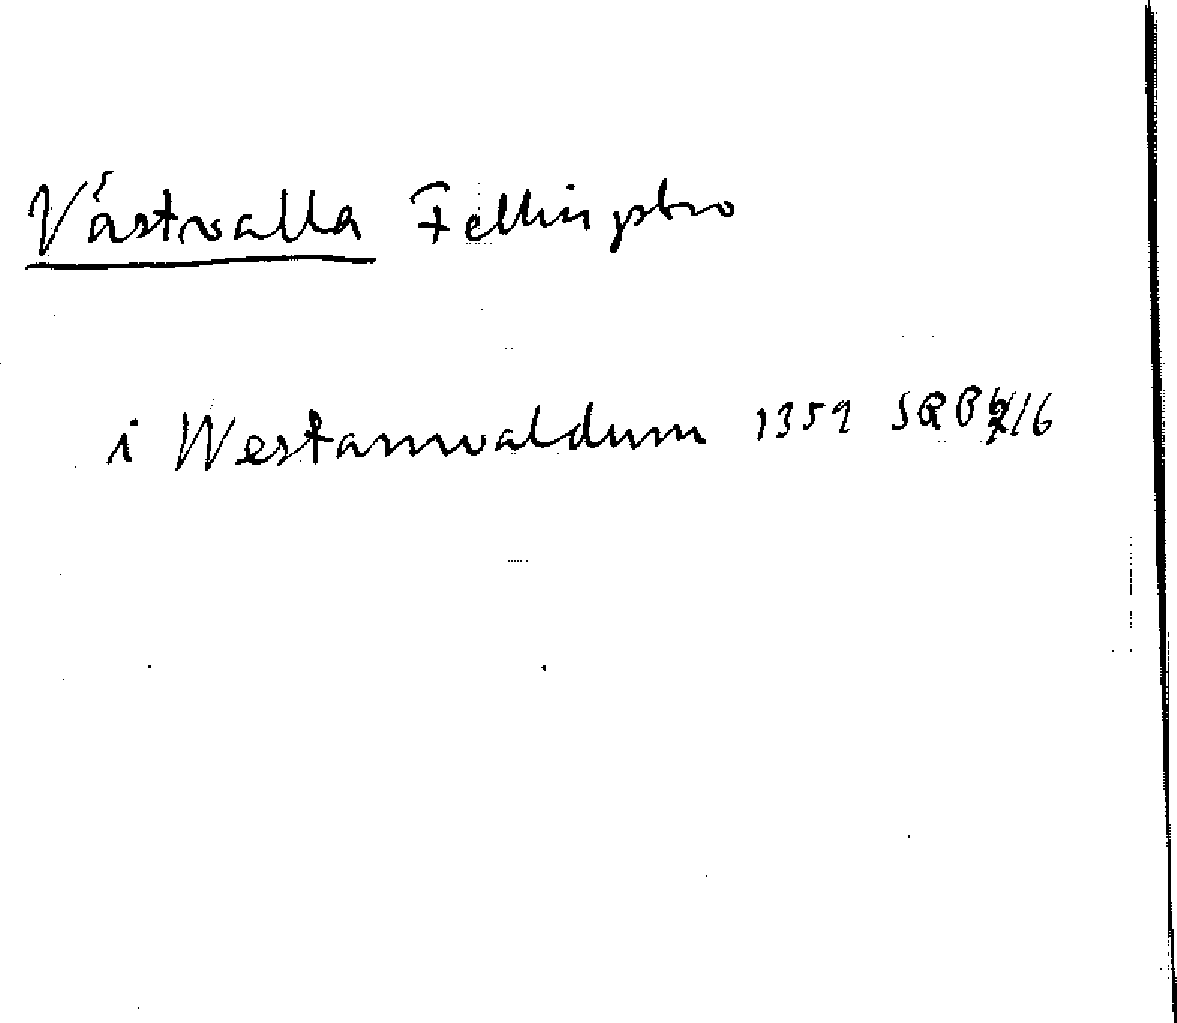 Västvalla Fellingsbro
i Westanwaldum 1352 SRB